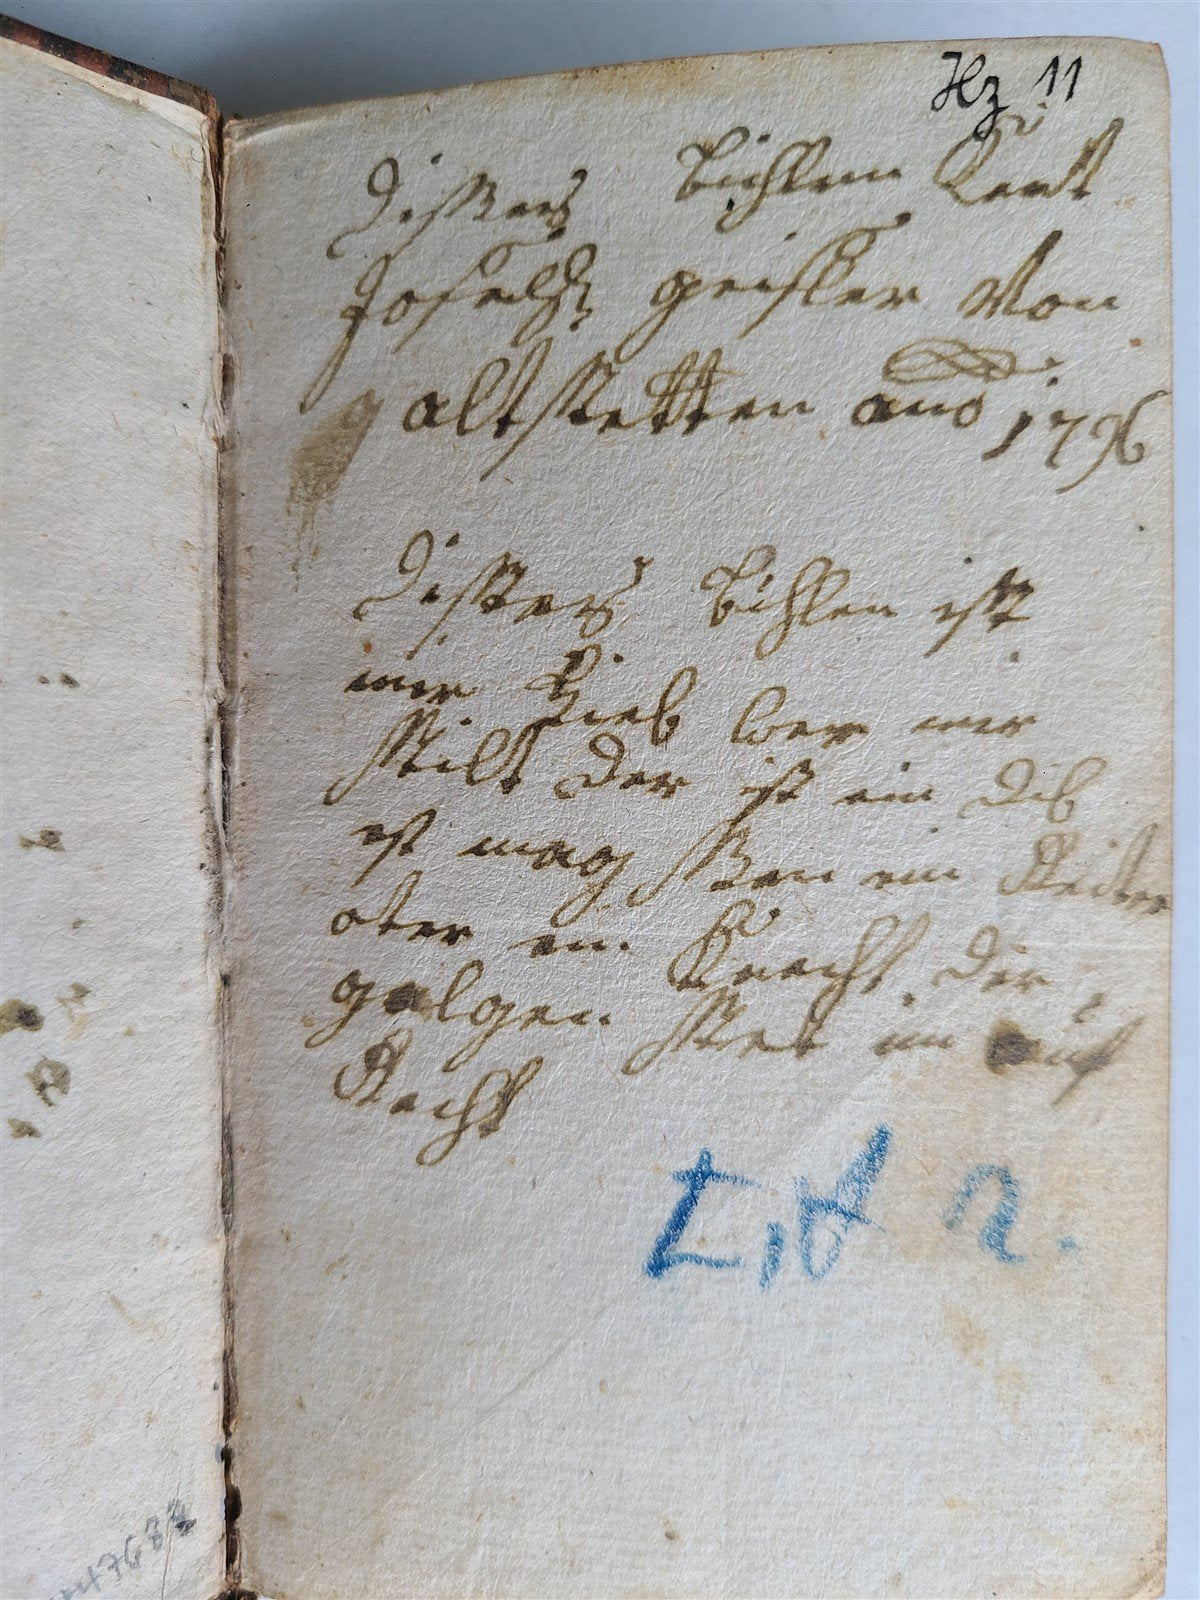 Hz 11
dißers bichlein Kert
Joseph geißer Von
altstetten ano 1796
dißers bichlen ist
mir Lieb wer mir
stilt der ist ein dib
est mag ßen ein Reiter
oder ein Knecht der
galgen stet im auf
Recht
Litt R.